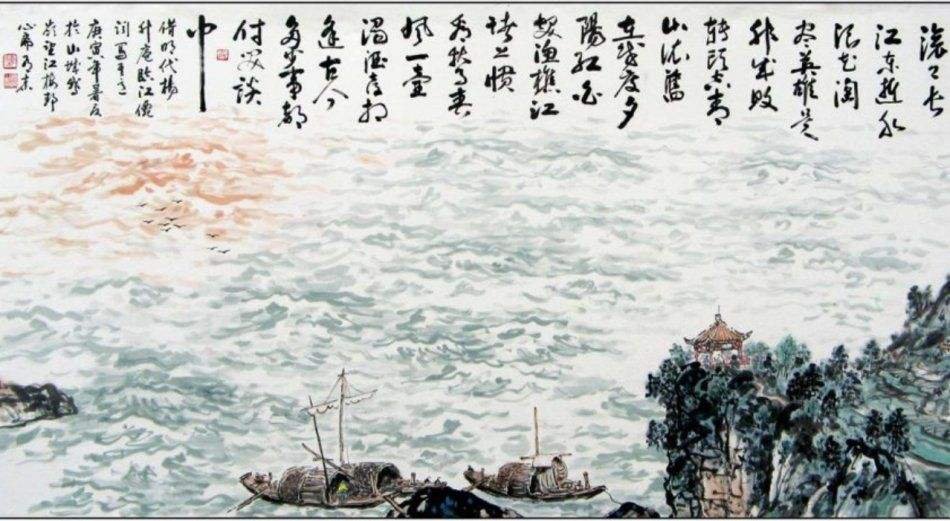 滚滚长
江东逝水
浪花淘
尽英雄是
非成败
转头空青
山依旧
在幾度夕
陽红白
发渔樵江
渚上惯
看秋月春
风一壶
浊酒喜相
逢古今
多少事都
付笑谈
中
借明代杨
升庵临江仙
词写其意
庚寅年
於山城
望江楼